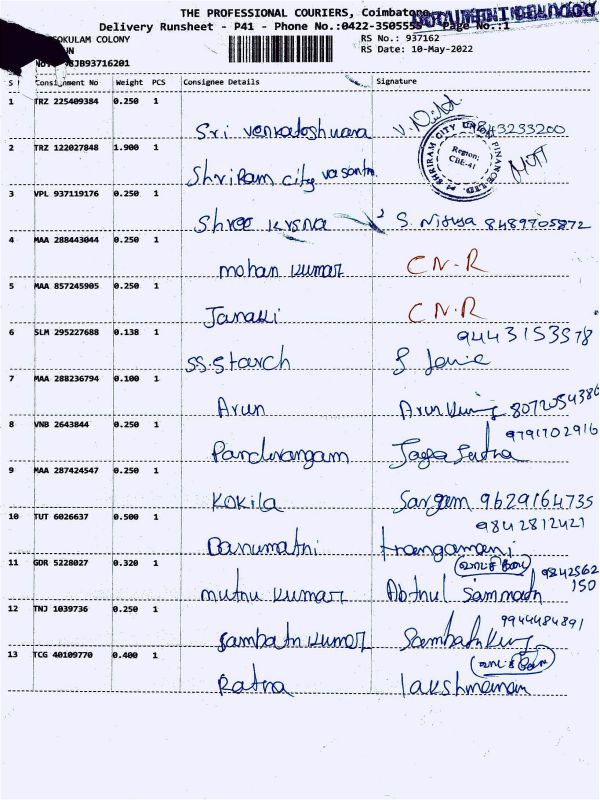 THE PROFESSIONAL COURIERS, Coimbatore
Delivery Runsheet - P41 - Phone No.:0422-3505555 Page No.:1
OKULAM COLONY RS No.: 937162
UN RS Date: 10-May-2022
JB93716201
S Consignment No Weight PCS Consignee Details Signature
1 TRZ 225409384 0.250 1
Sri Venkatoshwara V. 9843233200
2 TRZ 122027848 1.900 1
ShriRam city vasantm
SHRIRAM CITY UNION FINANCE LTD.
Region:
CBE-41
3 VPL 937119176 0.250 1
Shree Krsna S. Nithya 8489705872
4 MAA 288443044 0.250 1
mohan kumar C N-R
5 MAA 857245905 0.250 1
Janakki C N-R
6 SLM 295227688 0.138 1 9443153578
SS.Starch
7 MAA 288236794 0.100 1
Arun Arun 8072054386
8 VNB 2643844 0.250 1 9791702916
Panduvangam
9 MAA 287424547 0.250 1
Kokila Sargam 9629164735
10 TUT 6026637 0.500 1 9842812421
Banumathi trangamani
11 GDR 5228027 0.320 1
mutnu kumar Abtnul Sammadn 9842562150
12 TNJ 1039736 0.250 1 9944484891
Sambatn kumar Sambatn
13 TCG 40109770 0.400 1
Ratna lakshmanan